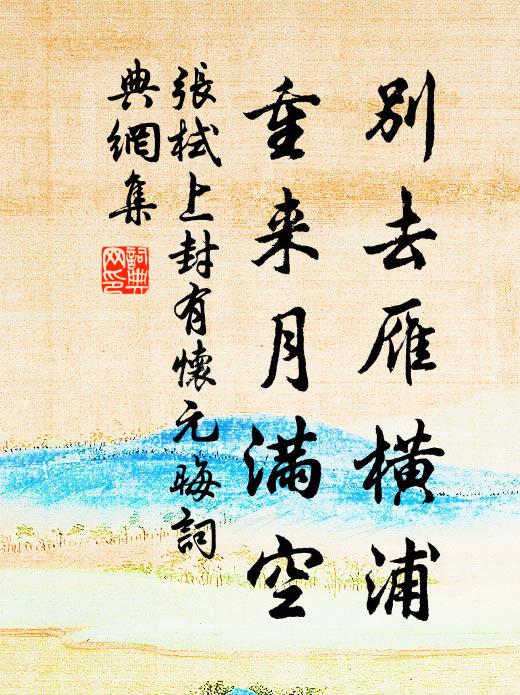 别去雁横浦
重来月满空
張栻上封有懷元晦詞
典網集
詞典
网印